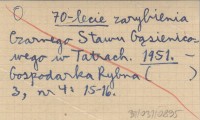 O 70-lecie zarybienia
Czarnego Stawu Gąsienico-
wego w Tatrach. 1951. -
Gospodarka Rybna ( )
3, nr 4: 15-16.